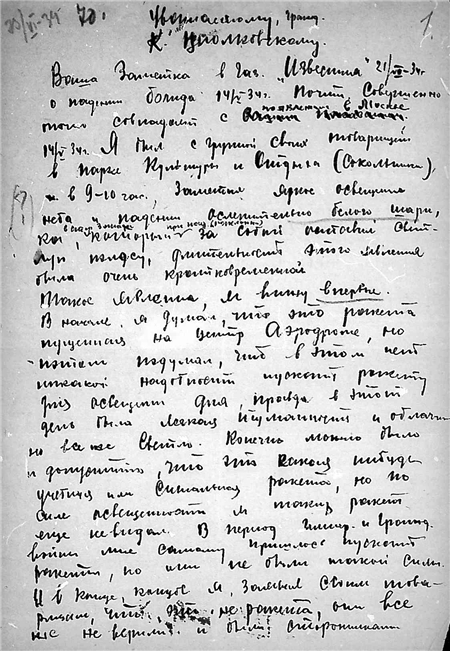 70. Уважаемому, гражд.
К. Циолковскому.
1
Ваша Заметка в газ. "Известия" 21/VI-34г
о падении болида 14/VI-34г. Почти Совершенно
точно совпадает с появлением в Москве
14/VI 34г. Я был с группой своих товарищей
в парке Культуры и Отдыха (Сокольники),
и в 9-10 час, Заметил яркое освещение
неба и падение ослепительно белого шара,
который за собой оставил свет-
лую полосу, длительность этого явления
была очень кратковременной
Такое явление, я вижу впервые.
В начале, я думал, что это ракета
пущенная на центр Аэродроме, но
потом подумал, что в этом нет
никакой надобности пускать ракету
при освещении дня, правда в этот
день была легкая туманность и облачн
но все же Светло. Конечно можно было
и допустить, что это какая нибудь
учебная или Сигнальная ракета, но по
силе освещенности я таких ракет
еще не видал. В период Импер. и гражд.
войны мне самому пришлось пускать
ракеты, но они не были такой силы.
И в конце, концов я, Заявил своим това-
рищам, что это не ракета, они все
же не верили и были сторонниками